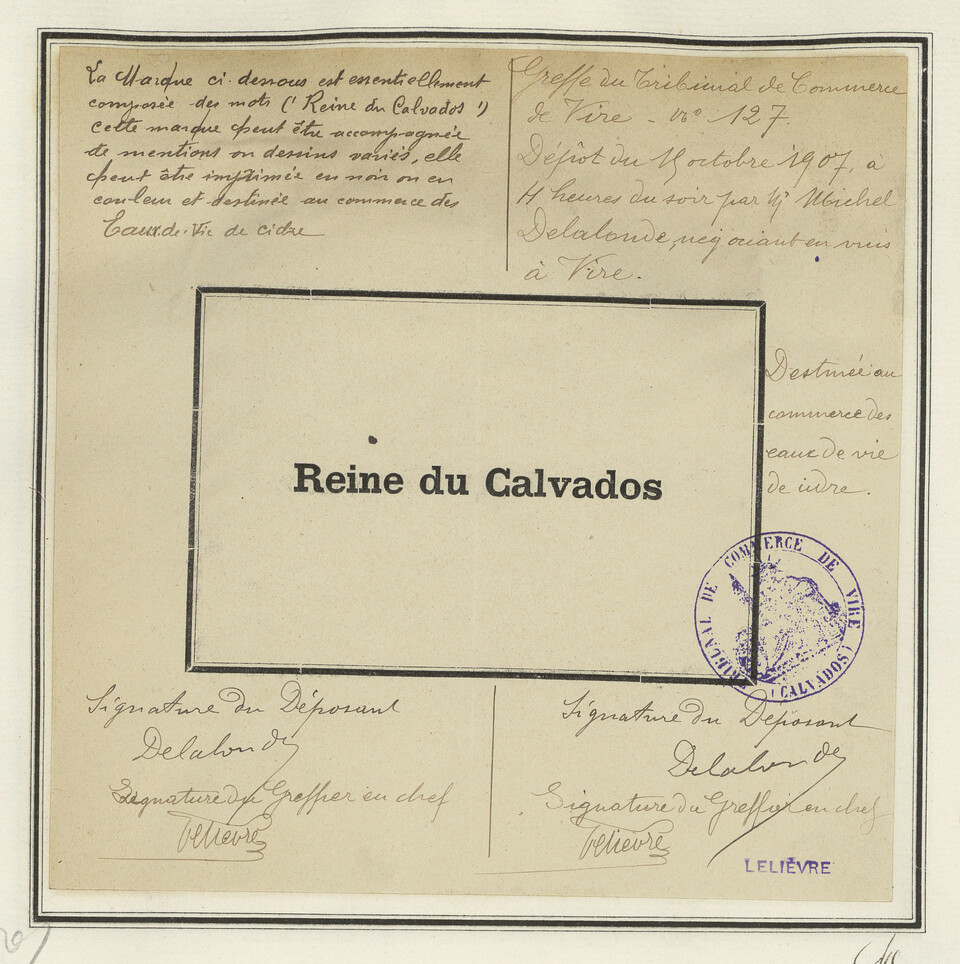 La Marque ci-dessous est essentiellement
composée des mots (" Reine du Calvados ")
cette marque peut être accompagnée
de mentions ou dessins variés, elle
peut être imprimée en noir ou en
couleur et destinée au commerce des
Eaux-de-Vie de cidre
Greffe du Tribunal de Commerce
de Vire - no 127.
Dépôt du octobre 1907, à
4 heures du soir par Mr Michel
Delalonde, négociant en vins
à Vire.
Reine du Calvados
Destinée au
commerce des
eaux de vie
de cidre.
TRIBUNAL DE COMMERCE DE VIRE (CALVADOS)
Signature du Déposant
Delalonde
Signature du Greffier en chef
Lelièvre
Signature du Déposant
Delalonde
Signature du Greffier en chef
Lelièvre
LELIÈVRE